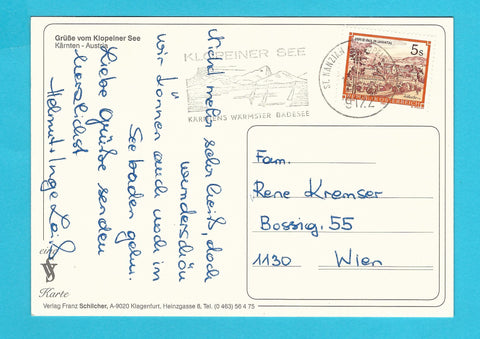 Grüße vom Klopeiner See
Kärnten - Austria
KLOPEINER SEE
KÄRNTENS WÄRMSTER BADESEE
ST. KANZIAN
9122
5s
REPUBLIK ÖSTERREICH
nicht mehr sehr heiß, doch
wunderschön
wir können auch noch im
See baden gehn.
Liebe Grüße senden
herzlichst
Helmut + Inge
Fam.
Rene Kremser
Bossig. 55
1130 Wien
eine
Karte
Verlag Franz Schlicher, A-9020 Klagenfurt, Heinzgasse 6, Tel. (0 463) 56 4 75